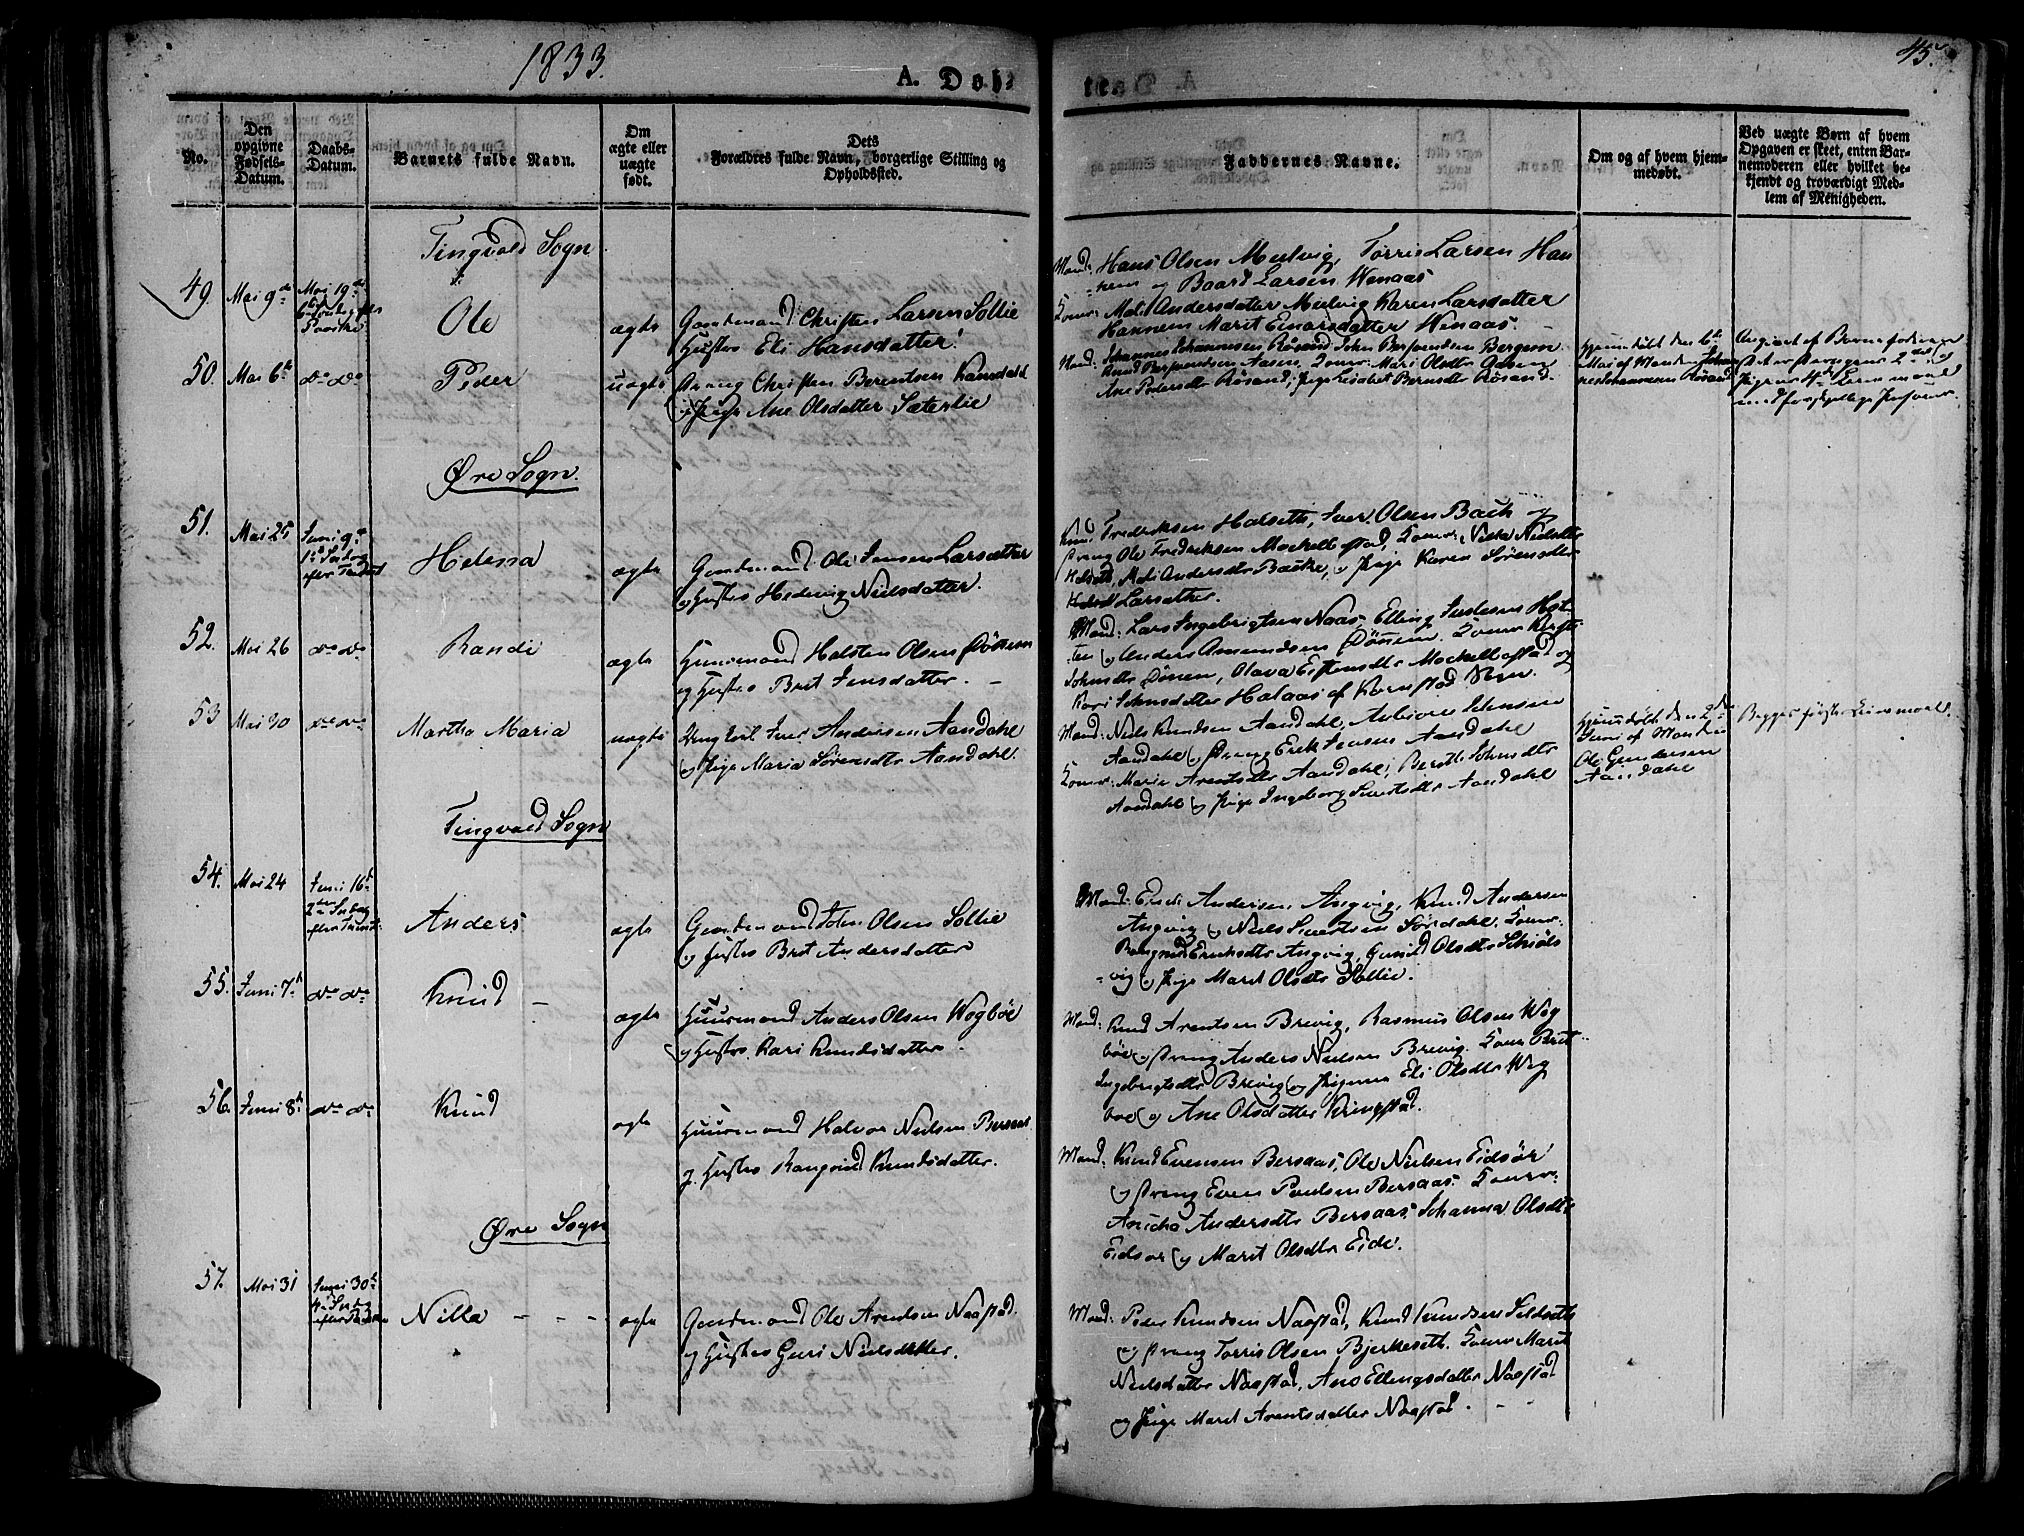 1833.
45.
A. Døbt
No.
Den opgivne Fødsels-Datum.
Daabs-Datum.
Barnets fulde Navn.
Om ægte eller uægte født.
Dets Forældres fulde Navn, borgerlige Stilling og Opholdssted.
Faddernes Navne.
Om og af hvem hjemmedøbt.
Ved uægte Børn af hvem Opgaven er skeet, enten Barnemoderen eller hvilket bekjendt og troværdigt Medlem af Menigheden.
Tingvold Sogn
49. Mai 9de Mai 19de Ole ægte Gaardmand Christen Larsen Sollie
Hustro Eli Hansdatter
Mand: Hans Olsen Meelvig, Torris Larsen Han
nem og Baard Larsen Wenaas
Koner: Mali Andersdatter Meelvig Karen Larsdatter
Hannem Marit Einarsdatter Wenaas.
50. Mai 6te do do Peder uægte Christen Berentsen
og Pige Ane Olsdatter Sæterlie
Mand: Johannes Johannesen Røsand John Bergem
Aasen Koner: Mari Olsdtr
Ane Pedersdtr Røsand, Pige Lisabet Berntsdtr Røsand.
Hjemmedøbt den 6te
Mai af Manden Johan
nes Johannesen Røsand
Angivet af Barnefaderen
Øre Sogn.
51. Mai 25 Juni 9de Helena ægte Gaardmand Ole Jensen Larsætter
og Hustro Hedevig Nielsdatter.
Knud Fredriksen Halseth, Iver Olsen Bach og
Dreng Ole Fredriksen Koner: Nilla Nielsdtr
Halseth, Mali Andersdtr Backe, og Pige Karen Sørensdtr
Larsætter.
52. Mai 26 do do Randi ægte Huusmand Halsten Olsen Dönnem
og Hustro Brit Jensdatter. -
Mand: Lars Ingebrigtsen Naas, Elling
og Anders Amundsen
Johnsdtr Olava
Kari Johnsdatter Halaas af Kornstad Sogn.
53 Mai 30 do do Martha Maria uægte Ungkarl Iver Andersen Aandahl
og Pige Maria Sørensdtr Aandahl.
Mand: Niels Knudsen Aandahl, Johnsen
Aandahl og Dreng Erik Jensen Aandahl
Koner: Marie Arentsdtr Aandahl, Bereth Johnsdtr
Aandahl og Pige Ingeborg Sivertsdtr Aandahl
Hjemmedøbt den 2den
Juni af Manden
Ole Gundersen
Aandahl
Begges første Leiermaal.
Tingvold Sogn
54. Mai 24 Juni 16de Anders ægte Gaardmand John Olsen Sollie
og Hustro Brit Andersdatter
Mand: Andersen Angvig, Knud Andersen
Angvig og Niels Sivertsen Sørdahl. Koner:
Erichsdtr Angvig, Gunild Olsdtr Schiøls
vig og Pige Marit Olsdtr Sollie.
55. Juni 7de do do Knud - ægte Huusmand Anders Olsen Wogböe
og Hustro Kari Knudsdatter.
Mand: Knud Arentsen Brevig, Rasmus Olsen Wog
böe og Dreng Anders Nielsen Brevig. Koner Brit
Ingebrigtsdtr Brevig og Pigerne Eli Olsdtr Wog
böe og Ane Olsdatter Kringstad.
56. Juni 8de do do Knud ægte Huusmand Halvor Nielsen Bersaas
og Hustro Rangnild Knudsdatter.
Mand: Knud Evensen Bersaas, Ole Nielsen Eidsör
og Dreng Even Paulsen Bersaas. Koner:
Anicha Andersdtr Bersaas, Johanna Olsdtr
Eidsør og Marit Olsdtr Eide.
Øre Sogn
57. Mai 31 Juni 30te Nilla - - - ægte Gaardmand Ole Arentsen Naastad.
og Hustro Guri Nielsdatter.
Mand: Peder Knudsen Naastad, Knud Knudsen
og Dreng Torris Olsen Bjerkeseth. Koner Marit
Nielsdatter Naastad, Ane Ellingsdatter Naastad
og Pige Marit Arentsdatter Naastad. - -